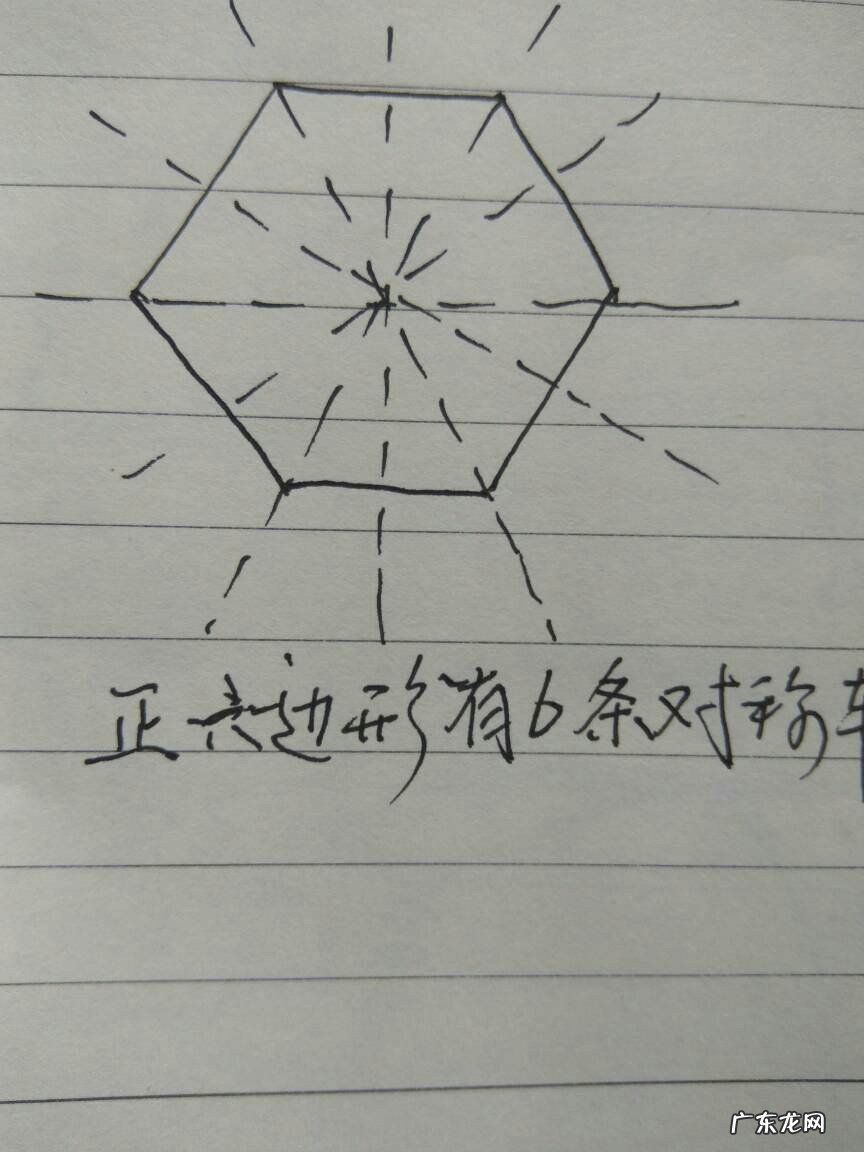 正六边形有6条对称
广东龙网